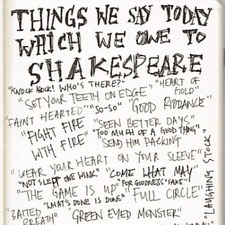 THINGS WE SAY TODAY
WHICH WE OWE TO
SHAKESPEARE
"KNOCK KNOCK! WHO'S THERE?" "HEART OF GOLD"
"SET YOUR TEETH ON EDGE"
"FAINT HEARTED" "SO-SO" "GOOD RIDDANCE"
"FIGHT FIRE WITH FIRE" "SEEN BETTER DAYS"
"TOO MUCH OF A GOOD THING"
"SEND HIM PACKING"
"WEAR YOUR HEART ON YOUR SLEEVE"
"NOT SLEPT ONE WINK" "COME WHAT MAY"
"THE GAME IS UP" "FOR GOODNESS' SAKE"
"WHAT'S DONE IS DONE" "FULL CIRCLE"
"BAITED BREATH" GREEN EYED MONSTER"
"LAUGHING STOCK"